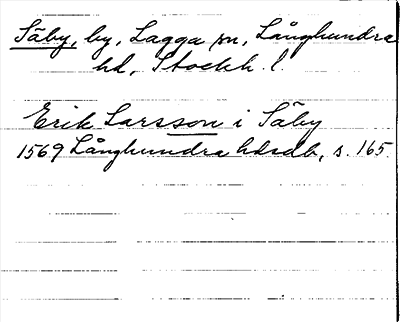 Säby, by, Lagga sn, Långhundra
hd, Stockh. l.
Erik Larsson i Säby
1569 Långhundra hdsdb, s. 165.